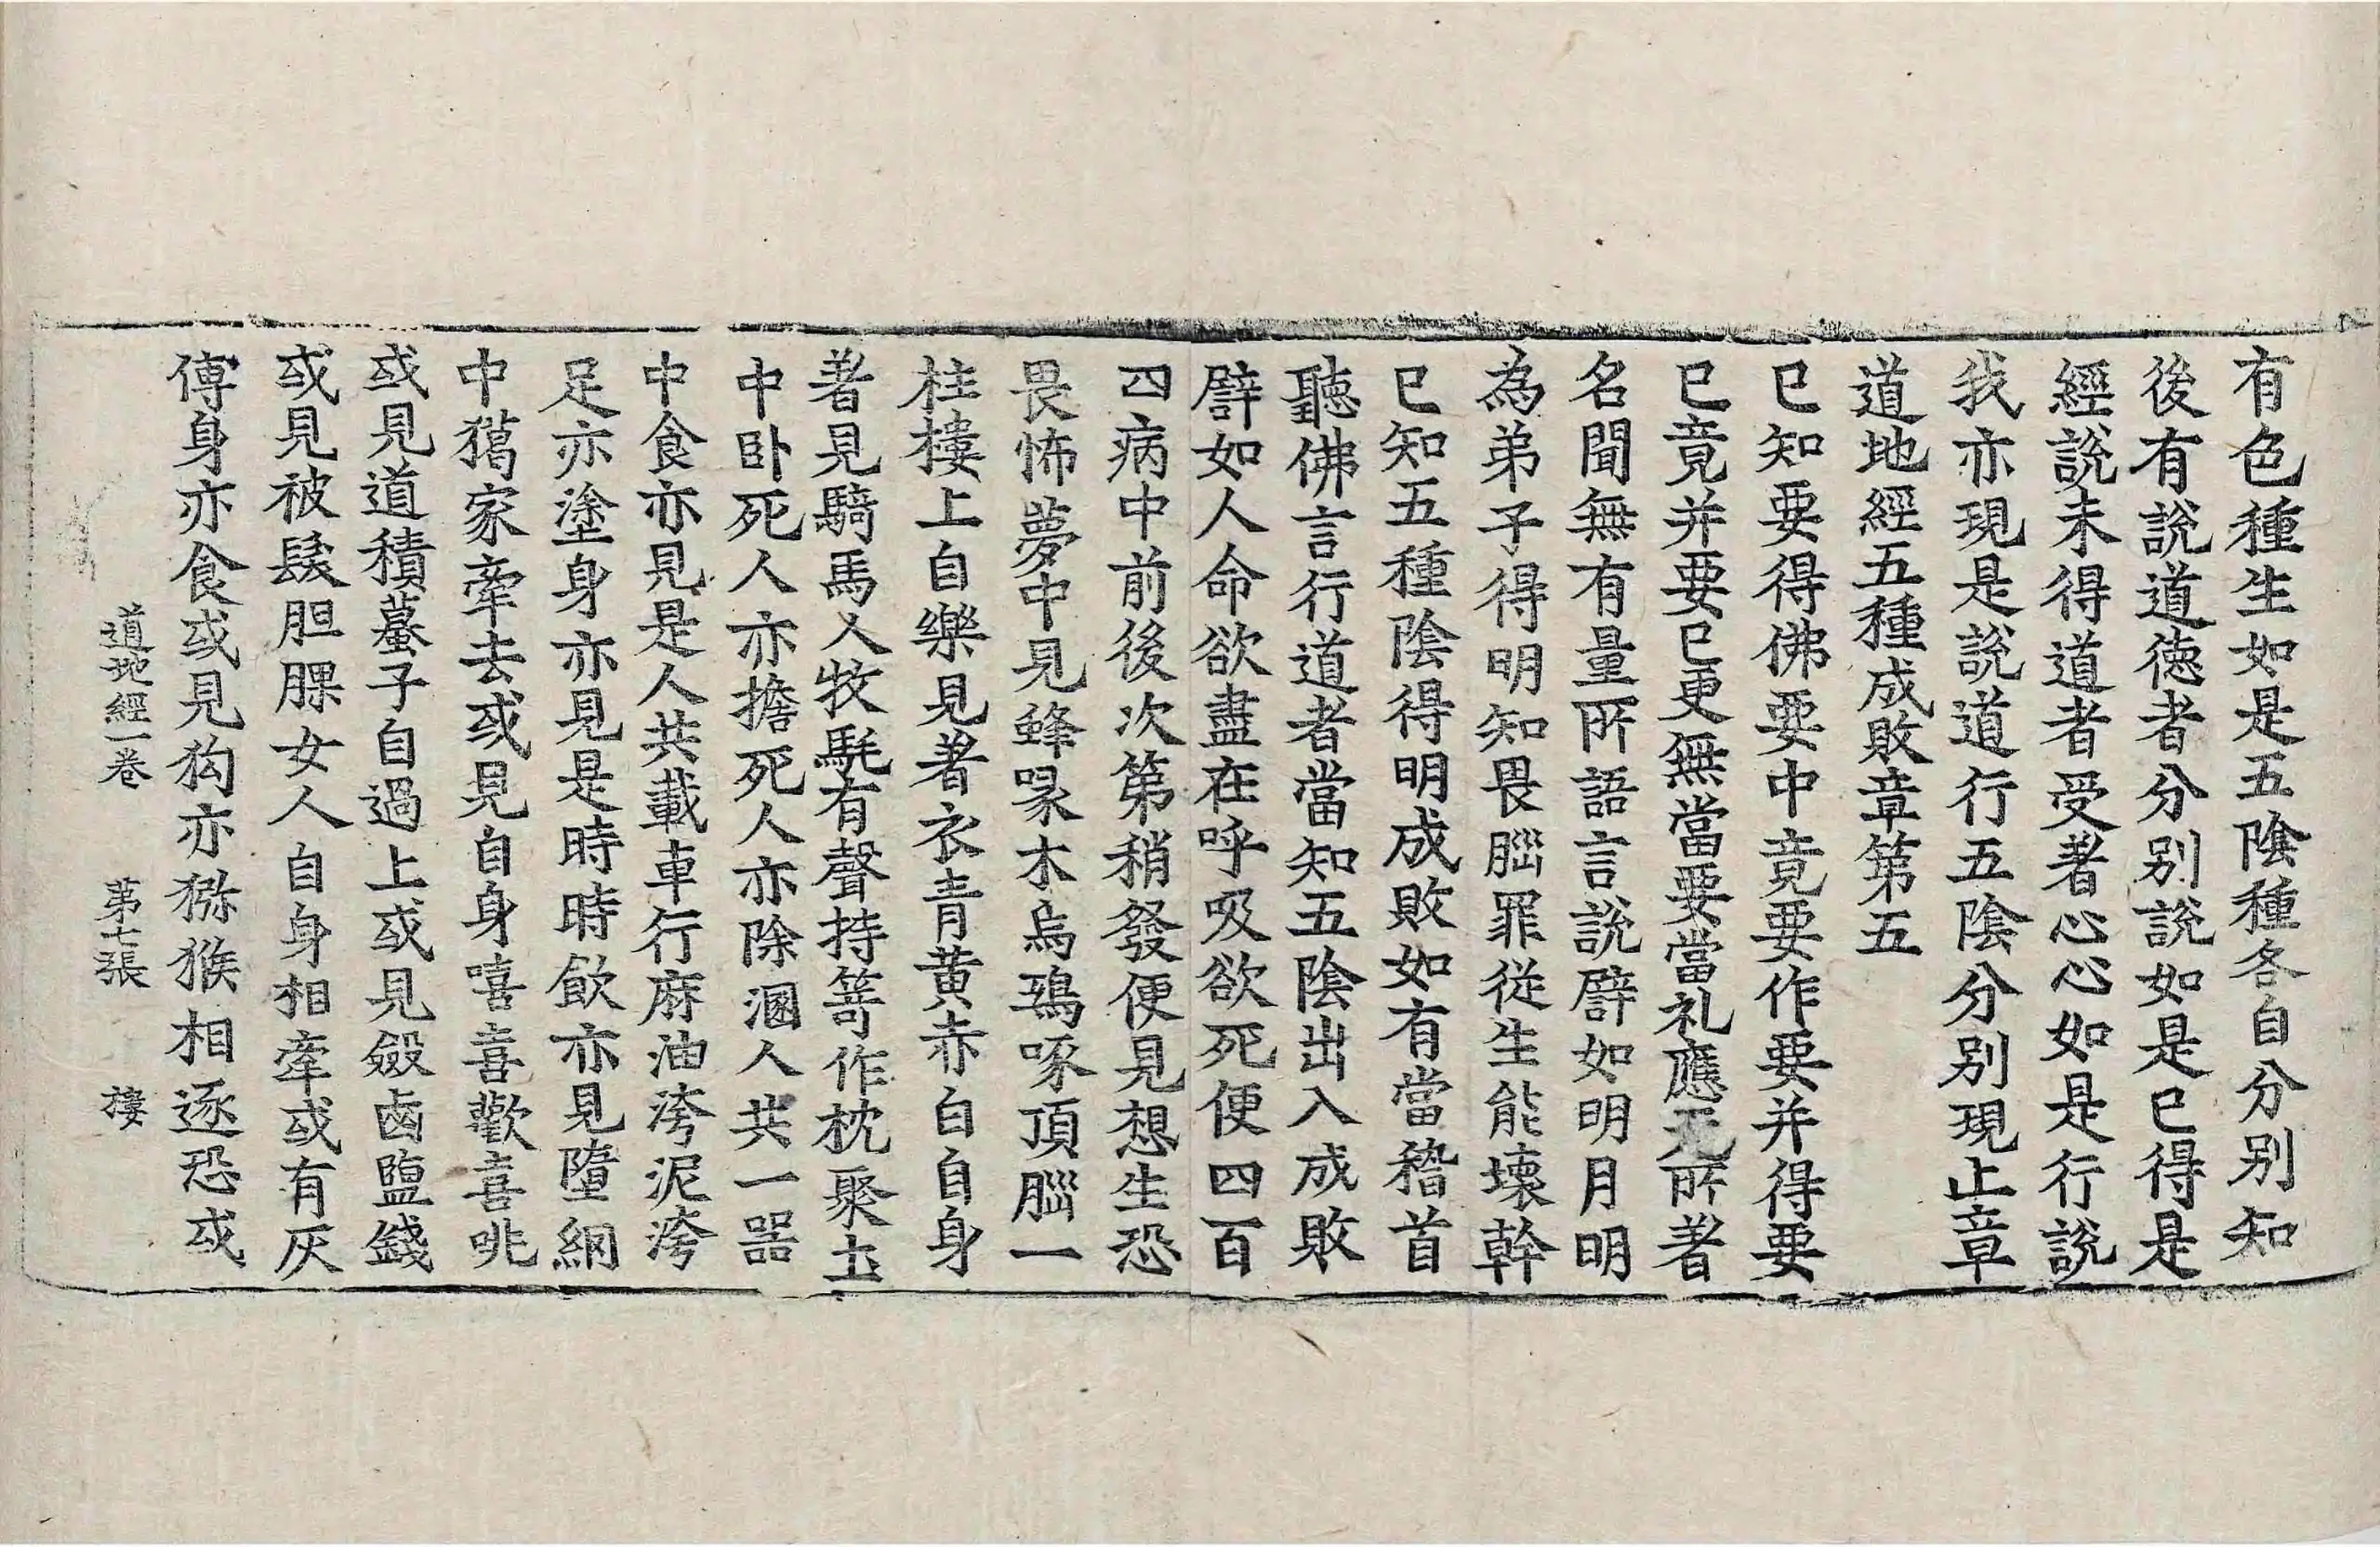 有色種生如是五陰種各自分別知
後有說道德者分別說如是已得是
經說未得道者受著心心如是行說
我亦現是說道行五陰分別現止章
道地經五種成敗章第五
已知要得佛要中竟要作要并得要
已竟并要已更無當要當礼應无所著
名聞無有量所語言說譬如明月明
為弟子得明知畏𦛁罪從生能壞幹
已知五種陰得明成敗如有當稽首
聽佛言行道者當知五陰出入成敗
譬如人命欲盡在呼吸欲死便四百
四病中前後次第稍發便見想生恐
畏怖夢中見蜂㖨木烏鵶啄頂𦛁一
柱樓上自樂見著衣青黄赤白自身
著見騎馬人牧髦有聲持箬作枕聚土
中卧死人亦擔死人亦除溷人共一器
中食亦見是人共載車行麻油洿泥洿
足亦塗身亦見是時時飲亦見墮網
中獦家牽去或見自身嘻喜歡喜咷
或見道積䗍子自過上或見斂鹵鹽錢
或見被髮胆臝女人自身相牽或有灰
傅身亦食或見狗亦猕猴相逐恐或
道地經一卷 第七張 樓